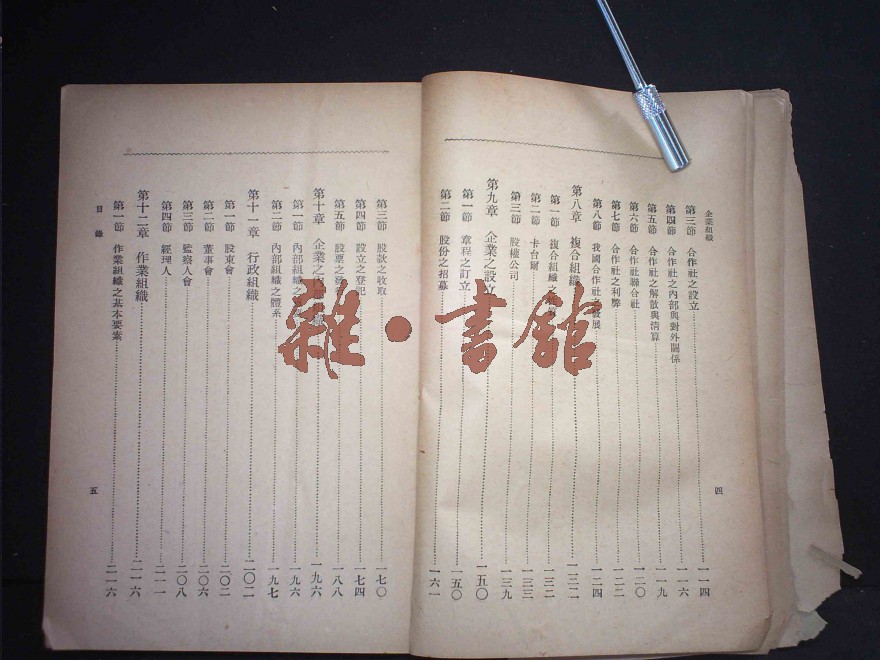 企業組織
第三節 合作社之設立 一一四
第四節 合作社之內部與對外關係 一一六
第五節 合作社之解散與清算 一一九
第六節 合作社聯合社 一二〇
第七節 合作社之利弊 一二二
第八節 我國合作社之發展 一二四
第八章 複合組織 一三二
第一節 複合組織之 一三二
第二節 卡台爾 一三三
第三節 股權公司 一三九
第九章 企業之設立 一五〇
第一節 章程之訂立 一五〇
第二節 股份之招募 一六一
四
第三節 股款之收取 一七〇
第四節 設立之登記 一七四
第五節 股票之發 一八八
第十章 企業之內 一九六
第一節 內部組織之 一九六
第二節 內部組織之體系 一九七
第十一章 行政組織 二〇二
第一節 股東會 二〇二
第二節 董事會 二〇六
第三節 監察人會 二〇八
第四節 經理人 二一一
第十二章 作業組織 二一六
第一節 作業組織之基本要素 二一六
目錄
五
雜·書館